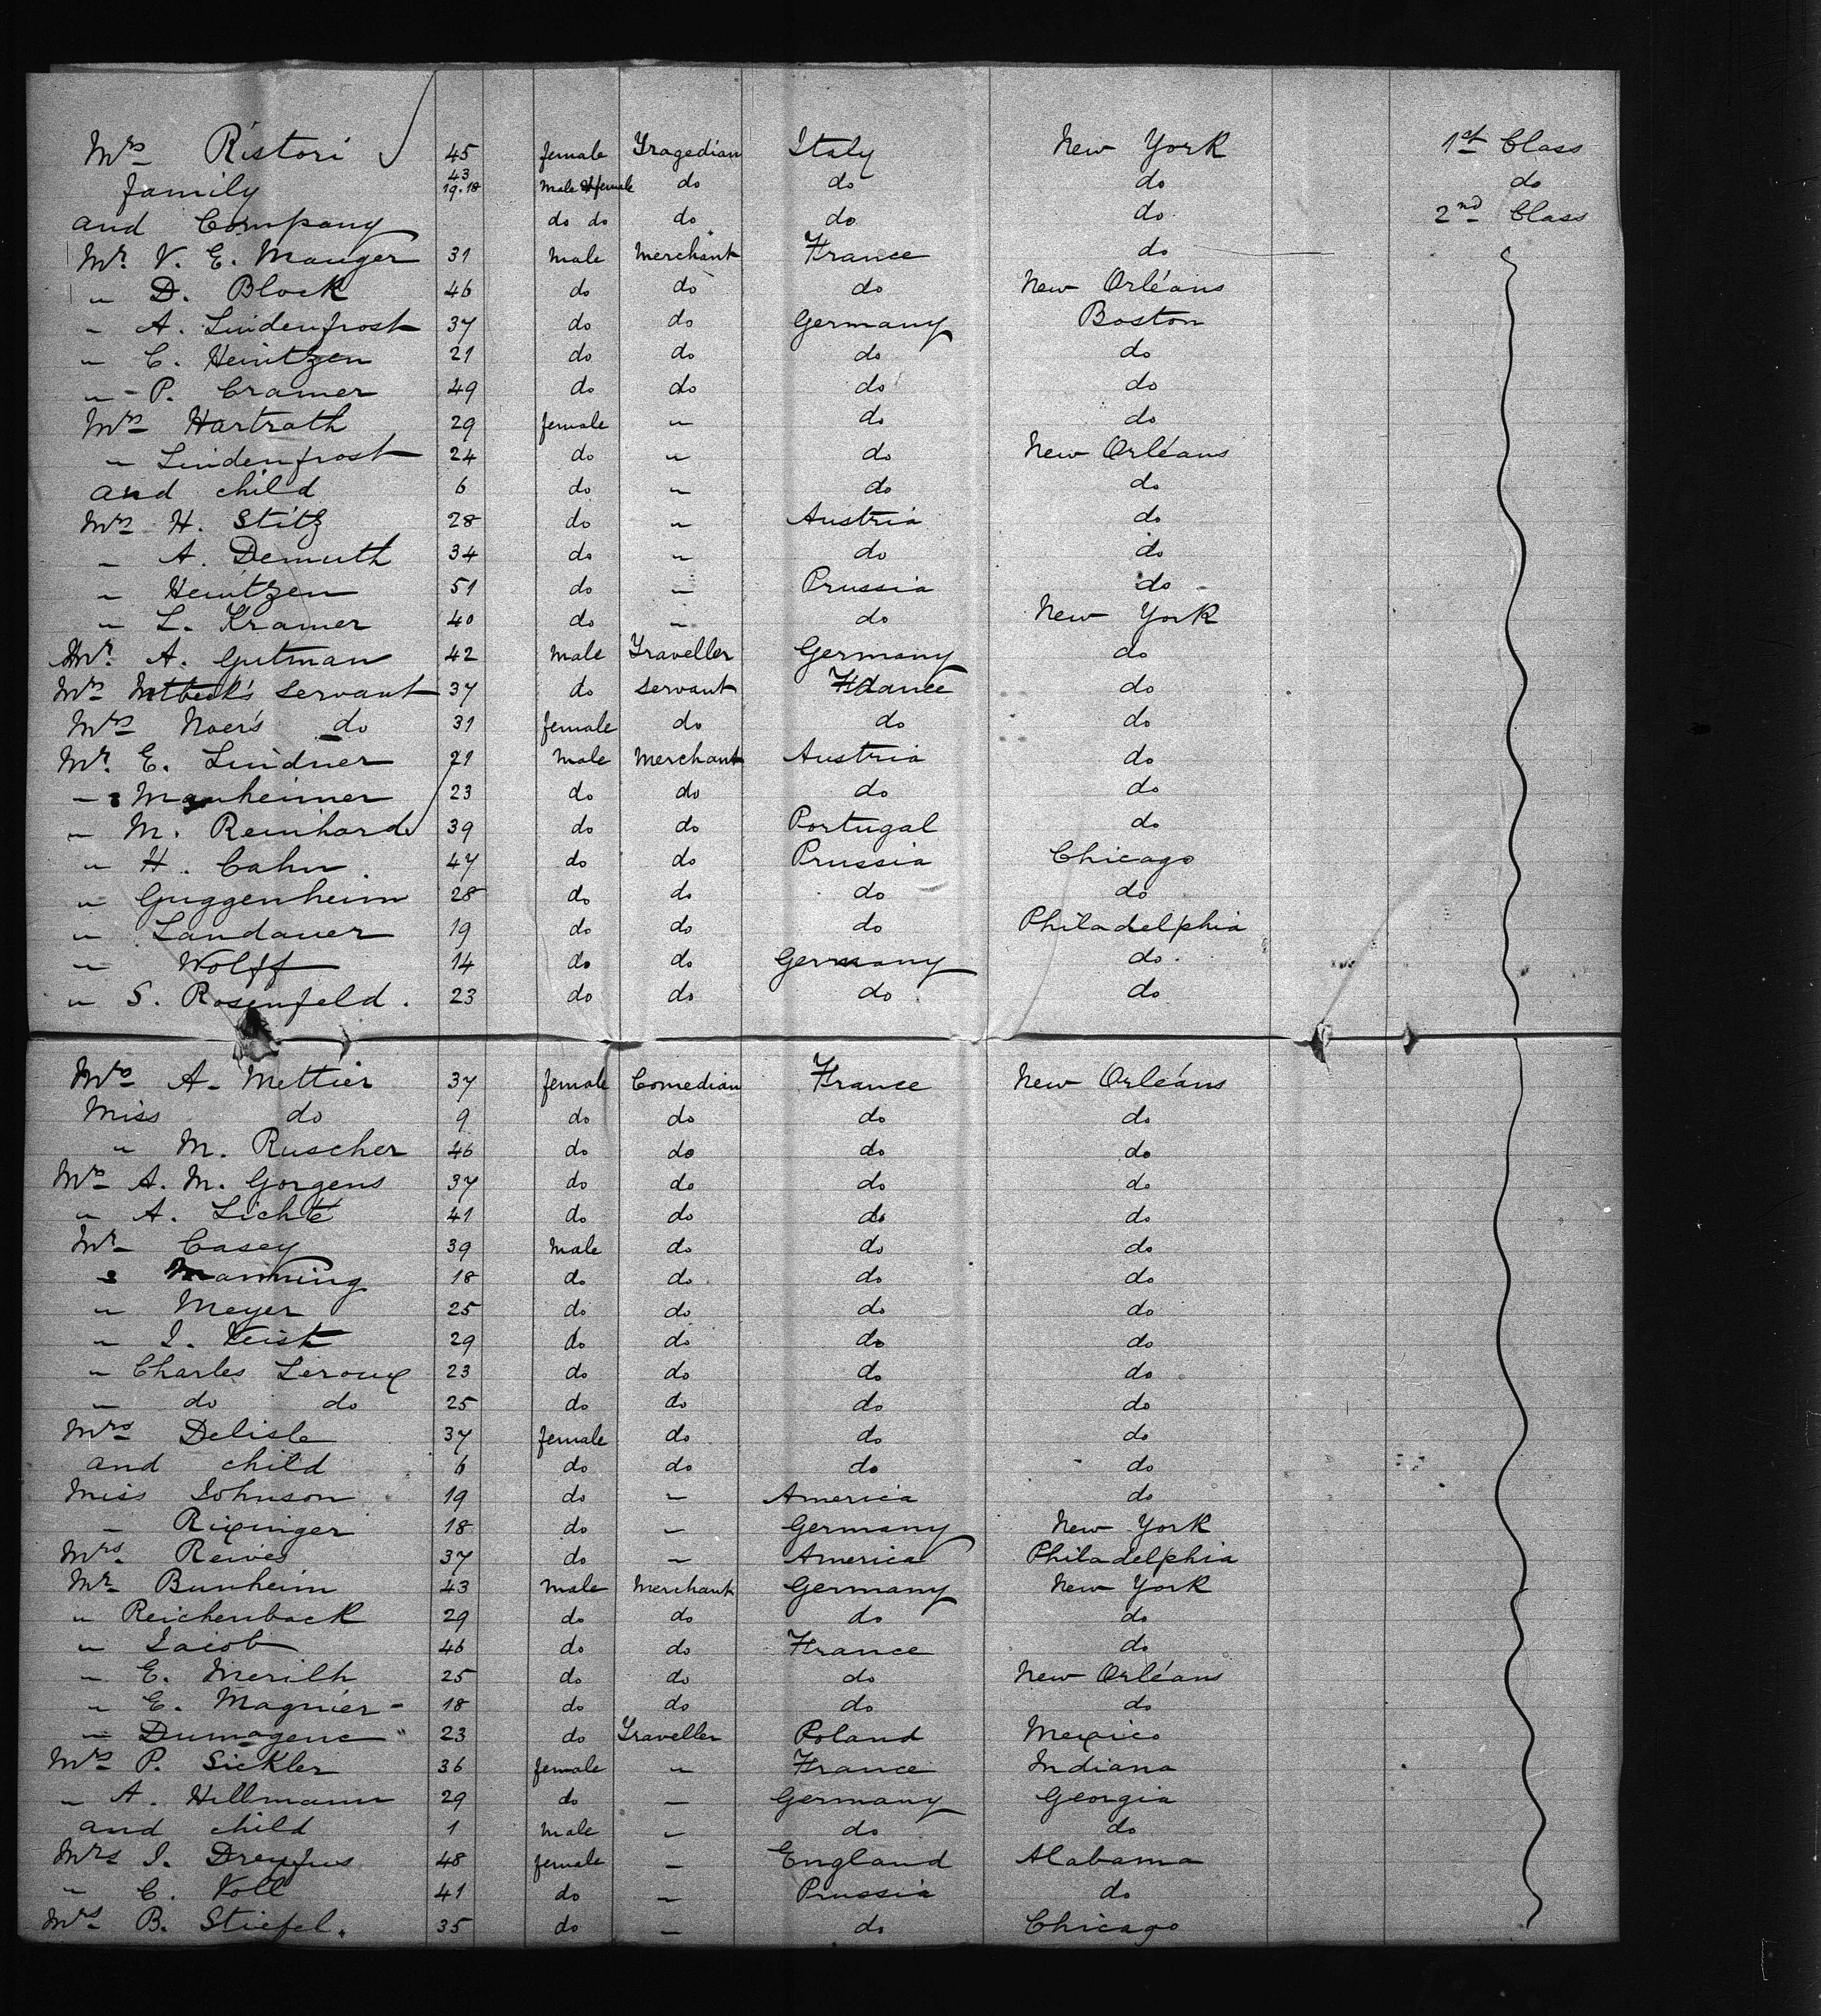 Mrs Ristori 45 female Tragedian Italy New York 1st Class
family 43 19.18 male & female do do do do
and Company do do do do do 2nd Class
Mr. V. E. Mauger 31 male merchant France do
" D. Block 46 do do do New Orléans
" A. Lindenfrost 37 do do Germany Boston
" C. Heintzen 21 do do do do
" P. Cramer 49 do do do do
Mrs Hartrath 29 female " do do
" Lindenfrost 24 do " do New Orléans
and child 6 do " do do
Mrs H. Stitz 28 do " Austria do
" A. Demuth 34 do " do do
" Heintzen 51 do " Prussia do
" L. Kramer 40 do " do New York
Mr. A. Gutman 42 male Traveller Germany do
Mrs servant 37 do servant France do
Mrs Noer's do 31 female do do do
Mr. E. Lindner 21 male merchant Austria do
" Manheimer 23 do do do do
" M. Reinhard 39 do do Portugal do
" H. Cahn 47 do do Prussia Chicago
" Guggenheim 28 do do do do
" Landauer 19 do do do Philadelphia
" Wolff 14 do do Germany do
" S. Rosenfeld. 23 do do do do
Mrs A. Mettier 37 female Comedian France New Orléans
Miss do 9 do do do do
" M. Ruscher 46 do do do do
Mrs A. M. Gorgens 37 do do do do
" A. Lichté 41 do do do do
Mr Casey 39 male do do do
" Manning 18 do do do do
" Meyer 25 do do do do
" I. Veist 29 do do do do
" Charles Leroux 23 do do do do
" do do 25 do do do do
Mrs Delisle 37 female do do do
and child 6 do do do do
Miss Johnson 19 do " America do
" Rixinger 18 do " Germany New York
Mrs. Reives 37 do " America Philadelphia
Mr Bunheim 43 male merchant Germany New York
" Reichenback 29 do do do do
" Jacob 46 do do France do
" E. Merilh 25 do do do New Orléans
" E. Magnier - 18 do do do do
" Dumagene 23 do Traveller Poland Mexico
Mrs P. Sickler 36 female " France Indiana
" A. Hillmann 29 do " Germany Georgia
and child 1 male " do do
Mrs J. Dreyfus 48 female " England Alabama
" C. Voll 41 do " Prussia do
Mrs B. Stiefel. 35 do " do Chicago